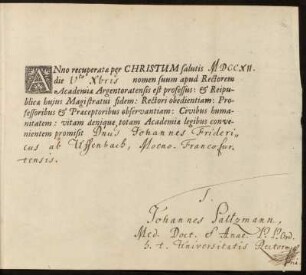 ANno recuperatæ per CHRISTUM salutis MDCCXII.
die Xbris nomen suum apud Rectorem
Academiæ Argentoratensis est professus: & Reipu-
blicæ hujus Magistratui fidem: Rectori obedientiam: Pro-
fessoribus & Præceptoribus observantiam: Civibus huma-
nitatem: vitam denique totam Academiæ legibus conve-
nientem promisit Dnus Johannes Frideri-
cus ab Uffenbach, Moeno-Francofur-
tensis.
Johannes Saltzmann,
Med. Doct. & Anat. P. P. Ord.
h. t. Universitatis Rector